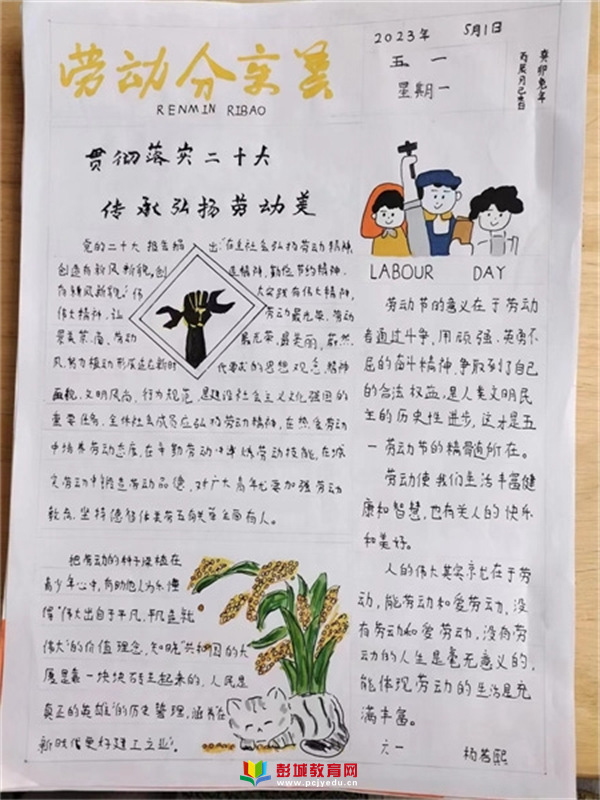 劳动分享美
RENMIN RIBAO
2023年 5月1日
五 一
星期一
癸卯兔年
贯彻落实二十大
传承弘扬劳动美
LABOUR DAY
党的二十大报告
出"在全社会弘扬劳动精神,
创造奋斗
勤俭节约精神,
伟大精神,让
劳动最光荣、劳动
最光荣、最美丽、蔚然
的思想观念、精神
面貌、文明风尚、行为规范,是建设社会主义文化强国的
重要任务。全体社会成员应弘扬劳动精神,在热爱劳动
中培养劳动态度,在辛勤劳动中
劳动技能,在诚
实劳动中锻造劳动品德,对广大青年也要加强劳动
教育,坚持德智体美劳五育
全面育人。
把劳动的种子深植在
青少年心中,有助他人为乐,懂
得"伟大出自于平凡,平凡造就
伟大"的价值理念,知晓"共和国的大
厦是靠一块块砖垒起来的,人民是
真正的英雄"的历史
新时代
劳动节的意义在于劳动
者通过斗争,用顽强、英勇不
屈的奋斗精神,争取到了自己
的合法权益,是人类文明民
主的历史性进步,这才是五
一劳动节的精髓所在。
劳动使我们生活丰富健
康和智慧,也有关人的快乐
和美好。
人的伟大其实就在于劳
动,能劳动和爱劳动,没
有劳动和爱劳动,没有劳
动的人生是毫无意义的,
能体现劳动的生活是充
满丰富。
六一
彭城教育网
www.pcjyedu.cn